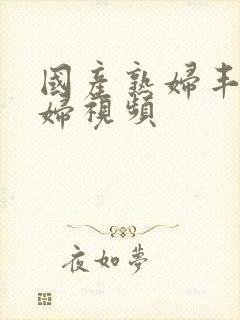 國產熟婦丰
婦視頻
夜如夢